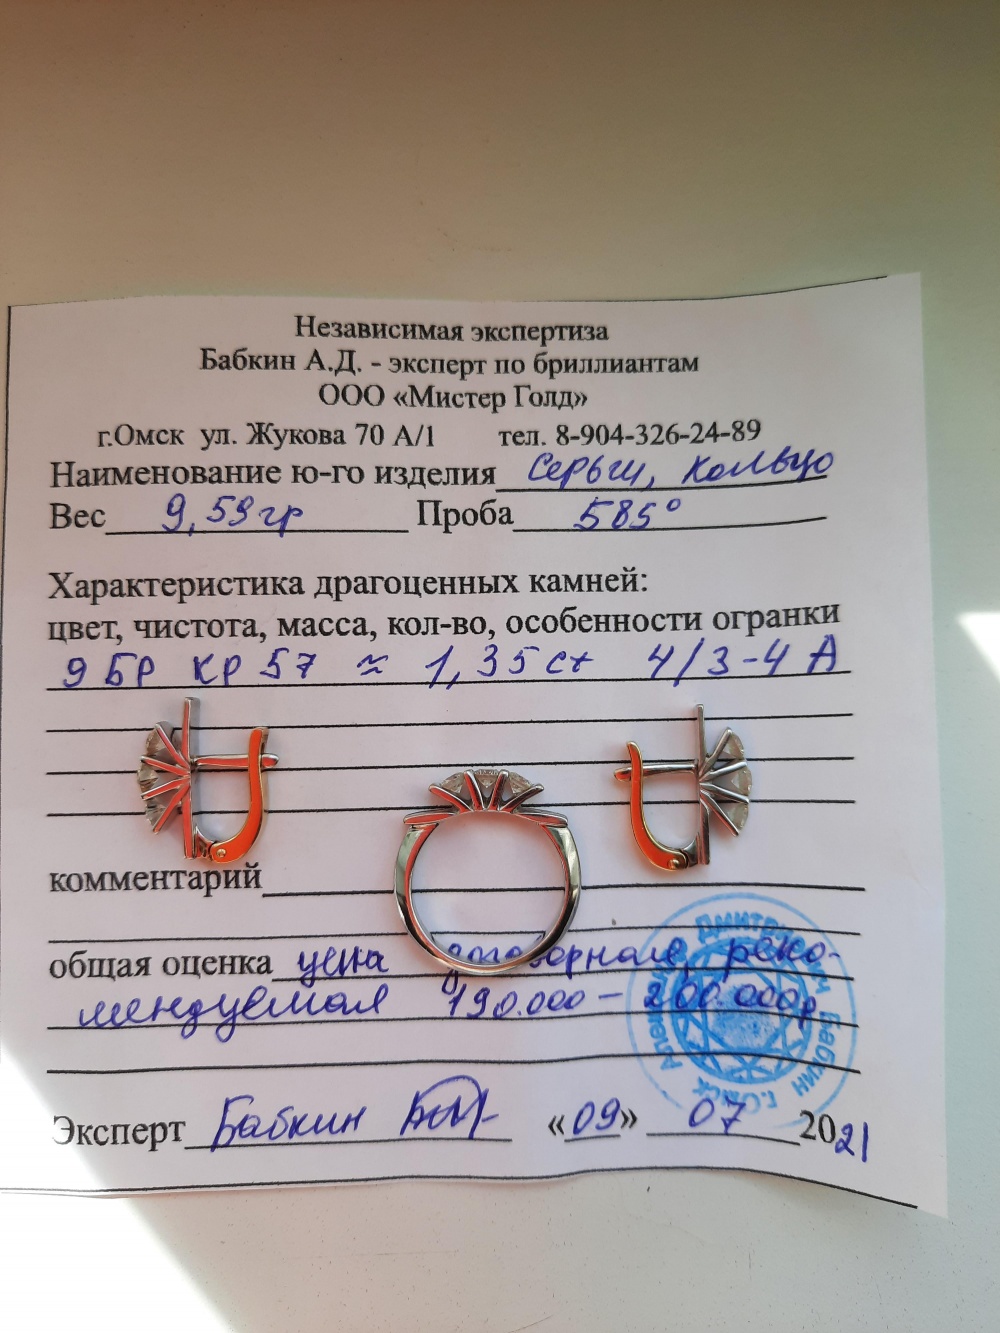 Независимая экспертиза
Бабкин А.Д. - эксперт по бриллиантам
ООО «Мистер Голд»
г.Омск ул. Жукова 70 А/1 тел. 8-904-326-24-89
Наименование ю-го изделия Серьги, кольцо
Вес 9,59 гр Проба 585°
Характеристика драгоценных камней:
цвет, чистота, масса, кол-во, особенности огранки
9 БР КР 57 ≈ 1,35 ct 4/3-4 А
комментарий
общая оценка цена договорная, реко-
мендуемая 190.000 – 200.000р
Эксперт Бабкин «09» 07 2021
Дмитриевич Бабкин г.Омск